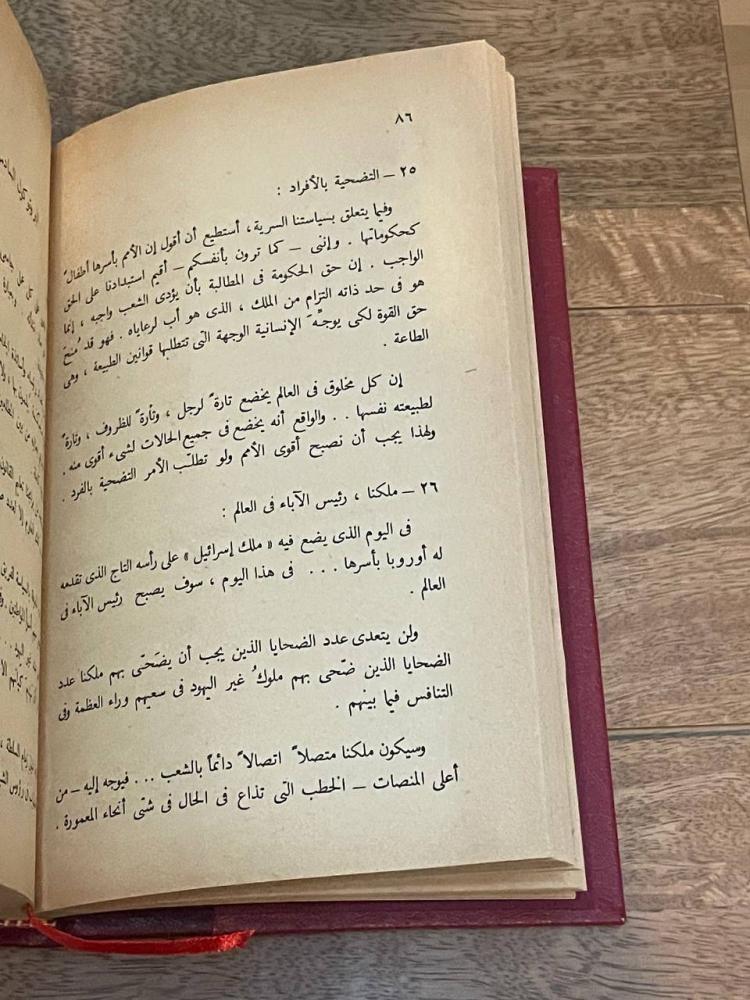 ٨٦
٢٥ – التضحية بالأفراد :
وفيما يتعلق بسياستنا السرية، أستطيع أن أقول إن الأمم بأسرها أطفالٌ
كحكوماتها . وإننى – كما ترون بأنفسكم – أقيم استبدادنا على الحق
الواجب . إن حق الحكومة فى المطالبة بأن يؤدى الشعب واجبه ، إنما
هو فى حد ذاته التزام من الملك ، الذى هو أب لرعاياه . فهو قد مُنحَ
حق القوة لكى يوجِّهَ الإنسانية الوجهة التى تتطلبها قوانين الطبيعة ، وهى
الطاعة .
إن كل مخلوق فى العالم يخضع تارةً لرجل ، وتارةً للظروف ، وتارةً
لطبيعته نفسها . . والواقع أنه يخضع فى جميع الحالات لشىء أقوى منه .
ولهذا يجب أن نصبح أقوى الأمم ولو تطلّب الأمر التضحية بالفرد .
٢٦ – ملكنا ، رئيس الآباء فى العالم :
فى اليوم الذى يضع فيه « ملك إسرائيل » على رأسه التاج الذى تقدمه
له أوروبا بأسرها . . . فى هذا اليوم ، سوف يصبح رئيس الآباء فى
العالم .
ولن يتعدى عدد الضحايا الذين يجب أن يضَحّى بهم ملكنا عدد
الضحايا الذين ضحّى بهم ملوكُ غير اليهود فى سعيهم وراء العظمة وفى
التنافس فيما بينهم .
وسيكون ملكنا متصلاً اتصالاً دائماً بالشعب ... فيوجه إليه – من
أعلى المنصات – الخطب التى تذاع فى الحال فى شتى أنحاء المعمورة .